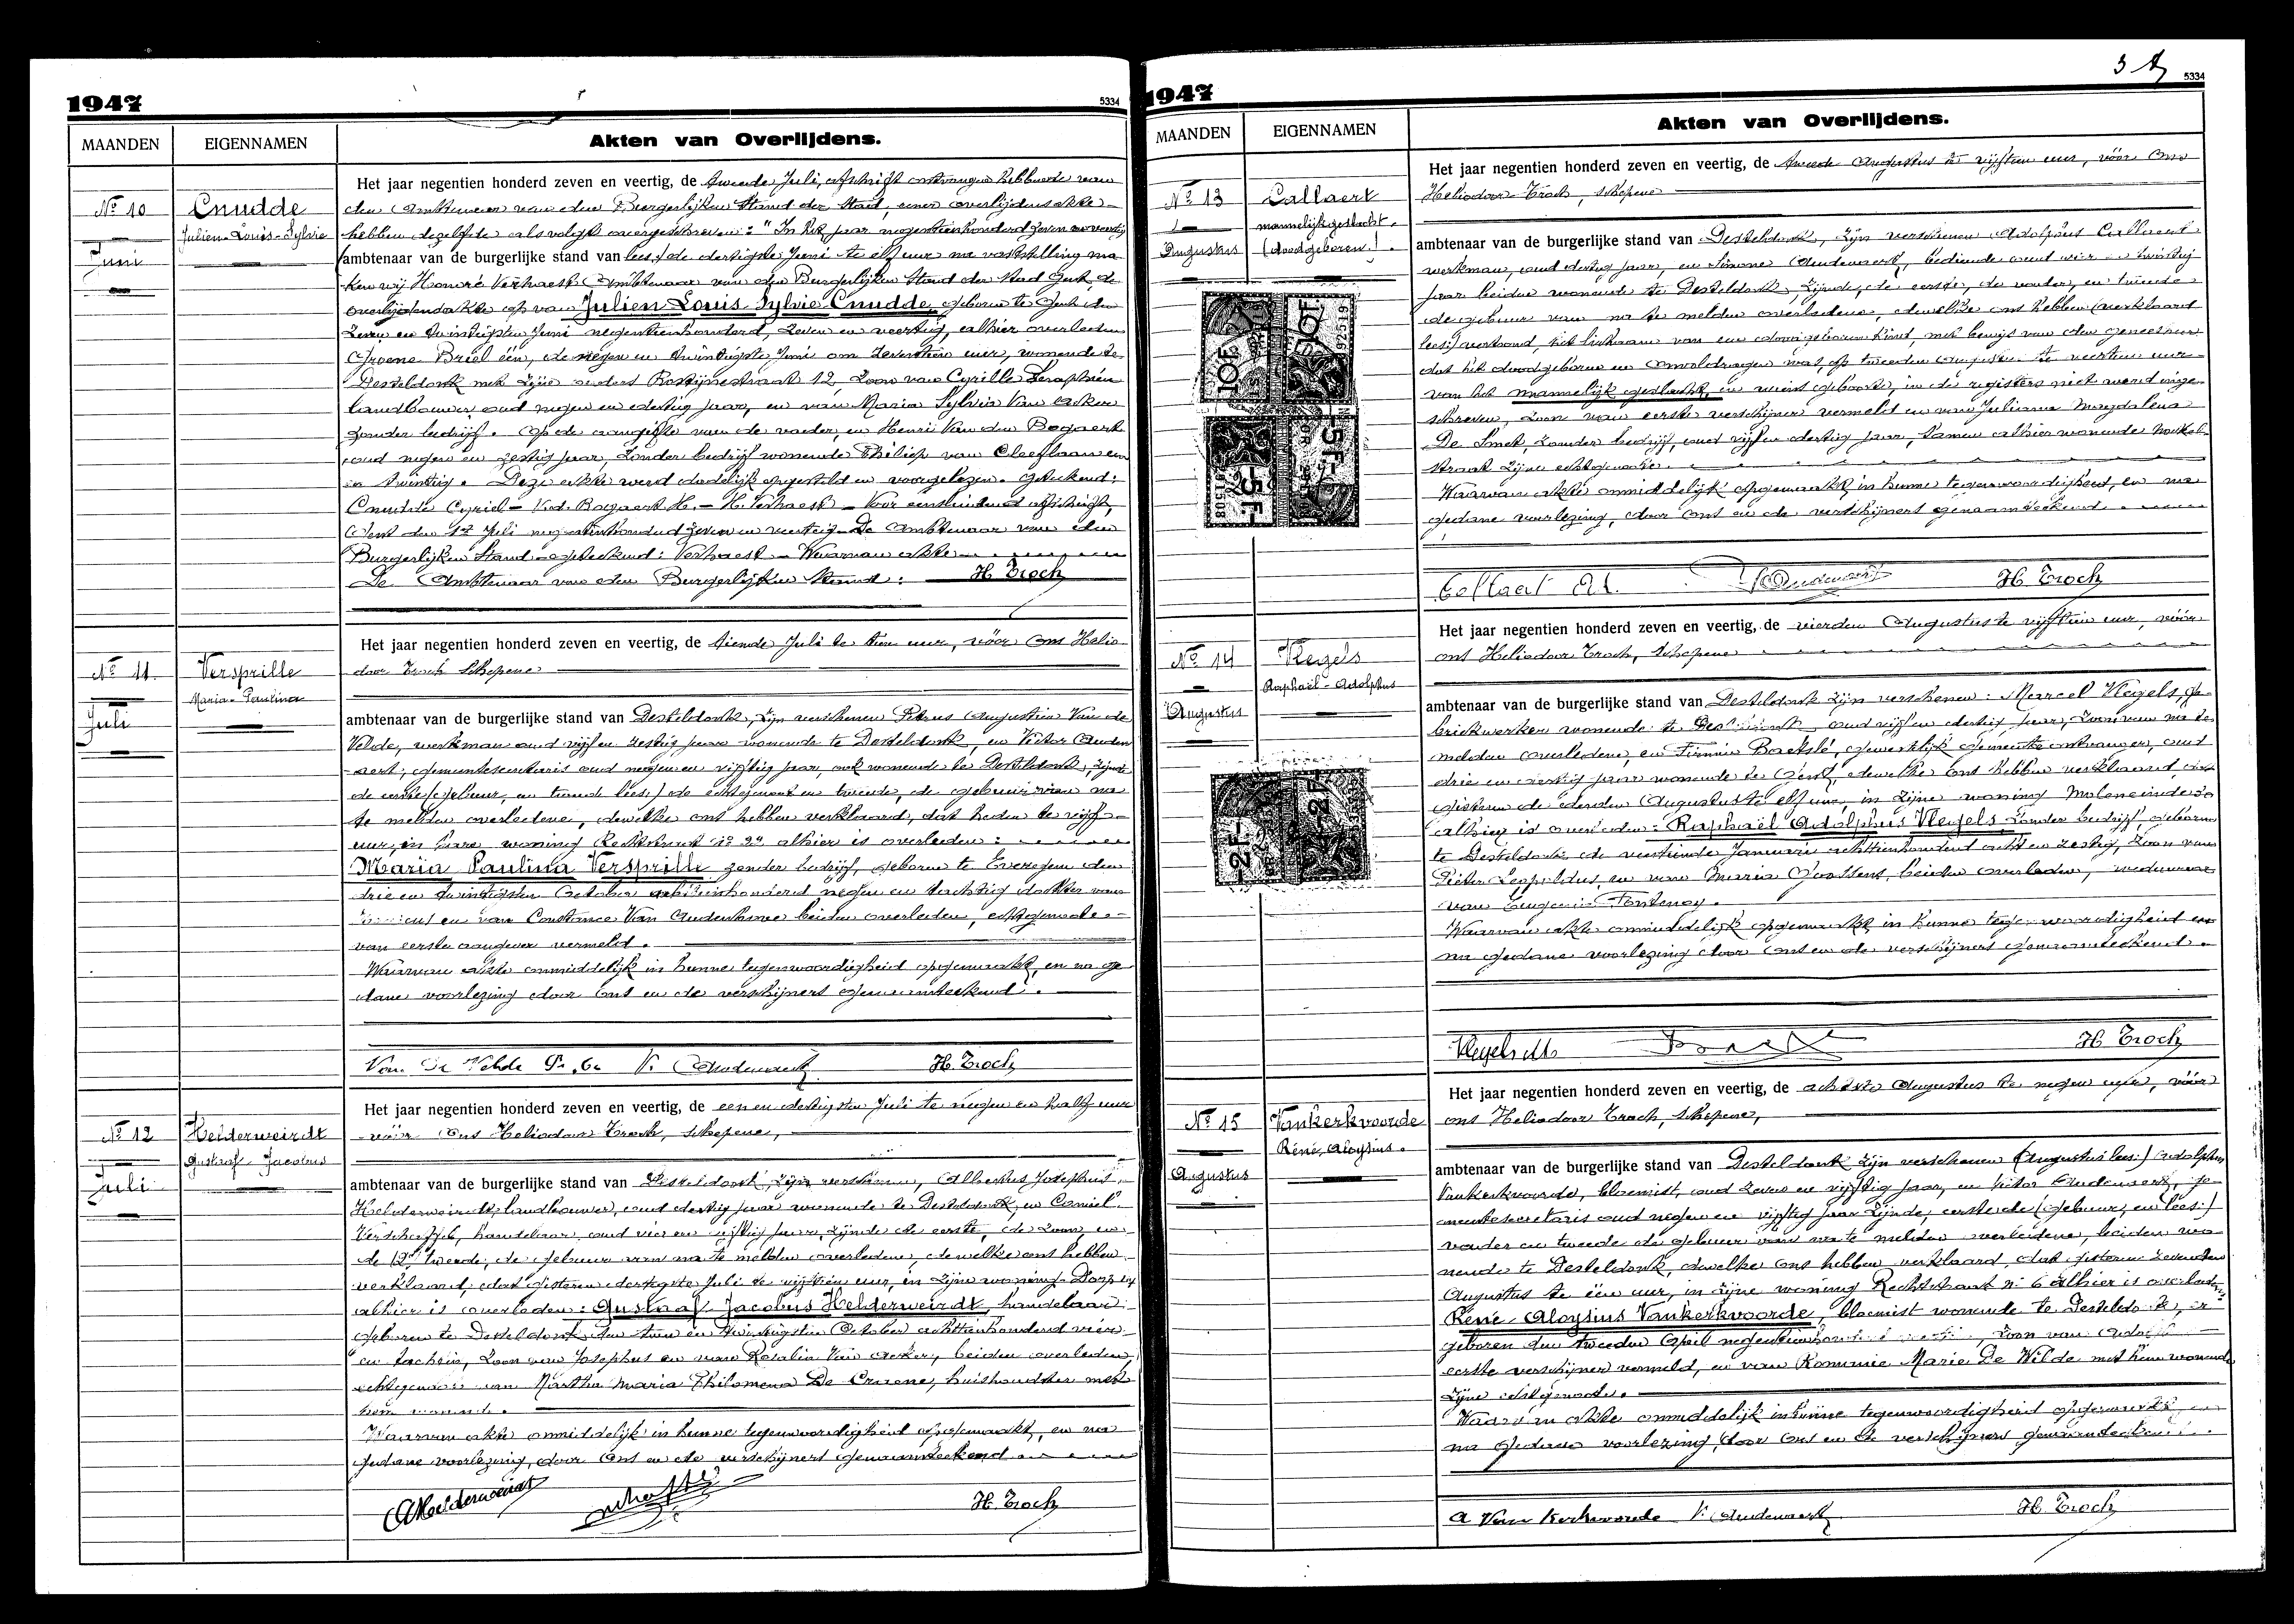 1947
5334
MAANDEN
EIGENNAMEN
Akten van Overlijdens.
No 10
Juni
Cnudde
Julien-Louis-Sylvie
Het jaar negentien honderd zeven en veertig, de tweede Juli, afschrift ontvangen hebbende van
den Ambtenaar van den Burgerlijken Stand der Stad, eener overlijdensakte
hebben dezelfde als volgt overgeschreven: "In het jaar negentienhonderd zeven en veertig
ambtenaar van de burgerlijke stand van lees:) de dertigste Juni te elf uur na vaststelling ma-
ken wij Honoré Verhaest Ambtenaar van den Burgerlijken Stand der Stad Gent, de
overlijdensakte op van Julien Louis Sylvie Cnudde, geboren te Gent den
zeven en twintigsten Juni negentienhonderd, zeven en veertig, alhier overleden
Groene Briel één, de negen en twintigste Juni om zeventien uur, wonende te
Desteldonk met zijne ouders Rostijnestraat 12, zoon van Cyrille Seraphien
landbouwer oud negen en dertig jaar, en van Maria Sylvia Van Acker
zonder bedrijf. Op de aangifte van de vader, en Henri Van den Bogaert
oud negen en zestig jaar, zonder bedrijf wonende Philiep van Cleeflaan een
en twintig. Deze akte werd dadelijk opgesteld en voorgelezen. Geteekend:
Cnudde Cyriel - V.d. Bogaert H. - H. Verhaest - Voor eensluidend afschrift,
Gent den 1e Juli negentienhonderd zeven en veertig - De Ambtenaar van den
Burgerlijken Stand - geteekend: Verhaest - Waarvan akte
De Ambtenaar van den Burgerlijken Stand: H. Troch
No 11.
Juli
Versprille
Maria-Paulina
Het jaar negentien honderd zeven en veertig, de tiende Juli te tien uur, vóór Ons Helio-
door Troch Schepene
ambtenaar van de burgerlijke stand van Desteldonk, zijn verschenen Petrus Augustien Van de
Velde, werkman oud vijf en zestig jaar wonende te Desteldonk, en Victor Auden
aert, gemeentesecretaris oud negen en vijftig jaar, ook wonende te Desteldonk, zijnde
de eerste (gebuur, en tweede lees:) de echtgenoot en tweede, de gebuur van na
te melden overledene, dewelke ons hebben verklaard, dat heden te vijf
uur, in hare woning Rechtstraat no alhier is overleden:
Maria Paulina Versprille zonder bedrijf, geboren te Evergem den
drie en twintigsten October achttienhonderd negen en tachtig dochter van
en van Constance Van Audenhove beiden overleden, echtgenoote
van eerste aangever vermeld.
Waarvan akte onmiddelijk in hunne tegenwoordigheid opgemaakt, en na ge-
dane voorlezing door Ons en de verschijners genaamteekend.
Van De Velde P. V. Audenaert H. Troch
No 12
Juli
Helderweirdt
Gustaaf - Jacobus
Het jaar negentien honderd zeven en veertig, de eenen dertigsten Juli te negen en half uur
vóór Ons Heliodoor Troch, schepene,
ambtenaar van de burgerlijke stand van Desteldonk, zijn verschenen, Albertus Josephus
Helderweirdt, landbouwer, oud dertig jaar wonende te Desteldonk, en Camiel
Verschaffel, handelaar, oud vier en vijftig jaar, zijnde de eerste, de zoon, en
de tweede, de gebuur van na te melden overledene, dewelke ons hebben
verklaard, dat gisteren dertigste Juli te vijftien uur, in zijne woning Dorp
alhier is overleden: Gustaaf Jacobus Helderweirdt, handelaar
geboren te Desteldonk den twee en twintigsten October achttienhonderd vier
en tachtig, zoon van Josephus en van Rosalia Van Acker, beiden overleden,
echtgenoot van Martha Maria Philomena De Croene, huishoudster met
hem wonende.
Waarvan akte onmiddelijk in hunne tegenwoordigheid opgemaakt, en na
gedane voorlezing, door Ons en de verschijners genaamteekend
A Helderweirdt H. Troch
1947
5334
MAANDEN
EIGENNAMEN
Akten van Overlijdens.
No 13
Augustus
Callaert
mannelijk geslacht.
(doodgeboren.)
Het jaar negentien honderd zeven en veertig, de tweede Augustus te vijftien uur, vóór Ons
Heliodoor Troch, schepene
ambtenaar van de burgerlijke stand van Desteldonk, zijn verschenen Adolphus Callaert
werkman, oud dertig jaar, en Simone Audenaert, bediende oud vier en twintig
jaar beiden wonende te Desteldonk, zijnde, de eerste, de vader, en tweede
de gebuur van na te melden overledene, dewelke ons hebben (verklaard
lees:) vertoond, het lichaam van een doodgeboren kind, met bewijs van den geneesheer
dat het doodgeboren en onvoldragen was, op tweeden Augustus te veertien uur
van het mannelijk geslacht, en wiens geboorte, in de registers niet werd inge-
schreven, zoon van eerste verschijner vermeld en van Juliana Magdalena
De Smet, zonder bedrijf, oud vijf en dertig jaar, samen alhier wonende
straat zijne echtgenoote.
Waarvan akte onmiddelijk opgemaakt, in hunne tegenwoordigheid, en na
gedane voorlezing, door Ons en de verschijners genaamteekend.
10F
5F
Callaert Ad. S. Audenaert H. Troch
No 14
Augustus
Vlegels
Raphaël-Adolphus
Het jaar negentien honderd zeven en veertig, de vierden Augustus te vijftien uur, vóór
ons Heliodoor Troch, Schepene
ambtenaar van de burgerlijke stand van Desteldonk zijn verschenen: Marcel Vlegels, fa-
briekwerker wonende te Desteldonk, oud vijf en dertig jaar, zoon van na te
melden overledene, en Firmin Baetslé, gewestelijk gemeente ontvanger, oud
drie en dertig jaar wonende te Gent, dewelke Ons hebben verklaard, dat
gisteren de derden Augustus te elf uur, in zijne woning Moleneinde
alhier is overleden: Raphaël Adolphus Vlegels zonder bedrijf, geboren
te Desteldonk de veertiende Januari achttienhonderd acht en zestig, zoon van
Pieter Leopoldus, en van Maria Goossens, beiden overleden, weduwnaar
van Eugenie Fontenoy.
Waarvan akte onmiddelijk opgemaakt in hunne tegenwoordigheid en
na gedane voorlezing door Ons en de verschijners genaamteekend.
2F
Vlegels M. H. Troch
No 15
Augustus
Vankerkvoorde
Réné, Aloysius.
Het jaar negentien honderd zeven en veertig, de achtste Augustus te negen uur, vóór
ons Heliodoor Troch, schepene,
ambtenaar van de burgerlijke stand van Desteldonk zijn verschenen (Augustus lees:) Adolphus
Vankerkvoorde, bloemist, oud zeven en vijftig jaar, en Victor Audenaert, ge-
meentesecretaris oud negen en vijftig jaar zijnde, eerste de (gebuur, en lees:)
vader en tweede de gebuur van na te melden overledene, beiden wo-
nende te Desteldonk, dewelke Ons hebben verklaard, dat gisteren zevenden
Augustus te één uur, in zijne woning Rechtstraat no 6 alhier is overleden
Réné Aloysius Vankerkvoorde, bloemist wonende te Desteldonk, er
geboren den tweeden April negentienhonderd zoon van Adolf
eerste verschijner vermeld, en van Romanie Marie De Wilde met hem wonende
zijne echtgenoote.
Waarvan akte onmiddelijk in hunne tegenwoordigheid opgemaakt, en
na gedane voorlezing, door Ons en de verschijners genaamteekend.
A Van Kerkvoorde V. Audenaert H. Troch